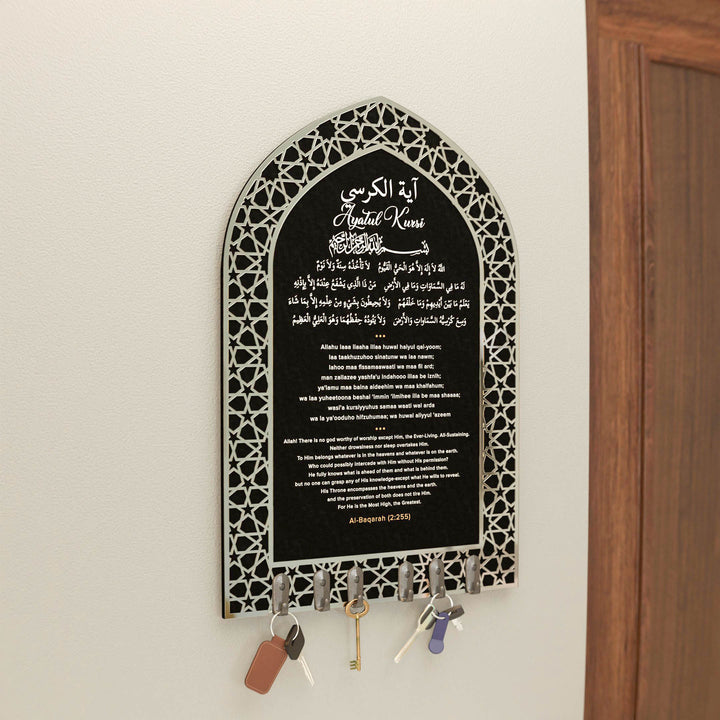 آية الكرسي
Ayatul Kursi
بسم الله الرحمن الرحيم
اللهُ لاَ إِلَهَ إِلاَّ هُوَ الْحَيُّ الْقَيُّومُ لاَ تَأْخُذُهُ سِنَةٌ وَلاَ نَوْمٌ
لَهُ مَا فِي السَّمَاوَاتِ وَمَا فِي الأَرْضِ مَن ذَا الَّذِي يَشْفَعُ عِنْدَهُ إِلاَّ بِإِذْنِهِ
يَعْلَمُ مَا بَيْنَ أَيْدِيهِمْ وَمَا خَلْفَهُمْ وَلاَ يُحِيطُونَ بِشَيْءٍ مِنْ عِلْمِهِ إِلاَّ بِمَا شَاءَ
وَسِعَ كُرْسِيُّهُ السَّمَاوَاتِ وَالأَرْضَ وَلاَ يَئُودُهُ حِفْظُهُمَا وَهُوَ الْعَلِيُّ الْعَظِيمُ
Allahu laaa ilaaha illaa huwal haiyul qai-yoom;
laa taakhuzuhoo sinatunw wa laa nawm;
lahoo maa fissamaawaati wa maa fil ard;
man zallazee yashfa'u indahooo illaa be iznih;
ya'lamu maa baina aideehim wa maa khalfahum;
wa laa yuheetoona beshai 'immin 'ilmihee illa be maa shaaa;
wasi'a kursiyyuhus samaa waati wal arda
wa la ya'ooduho hifzuhumaa; wa huwal aliyyul 'azeem
Allah! There is no god worthy of worship except Him, the Ever-Living. All-Sustaining.
Neither drowsiness nor sleep overtakes Him.
To Him belongs whatever is in the heavens and whatever is on the earth.
Who could possibly intercede with Him without His permission?
He fully knows what is ahead of them and what is behind them.
but no one can grasp any of His knowledge-except what He wills to reveal.
His Throne encompasses the heavens and the earth.
and the preservation of both does not tire Him.
For He is the Most High, the Greatest.
Al-Baqarah (2:255)